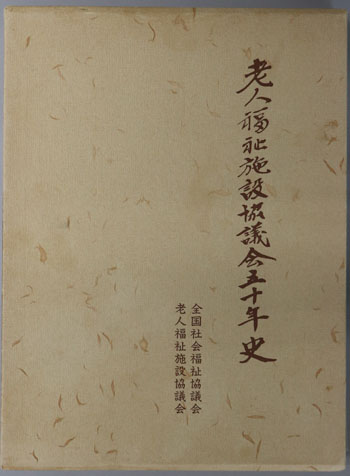 老人福祉施設協議会五十年史
全国社会福祉協議会
老人福祉施設協議会